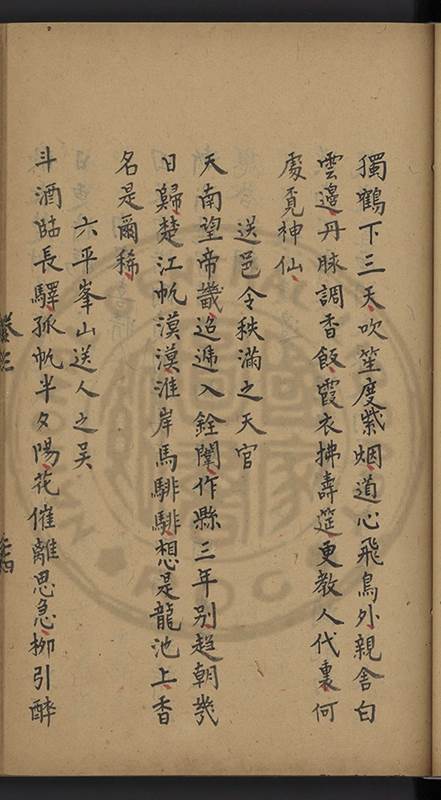 獨鶴下三天吹笙度紫烟道心飛鳥外親舍白
雲邊丹脉調香飯霞衣拂壽筵更教人代裏何
處覓神仙
送邑令秩滿之天官
天南望帝畿迢遞入銓闈作縣三年别趍朝幾
日歸楚江帆漠漠淮岸馬騑騑想是龍池上香
名是爾稀
六平峯山送人之吴
斗酒臨長驛孤帆半夕陽花催離思急柳引醉